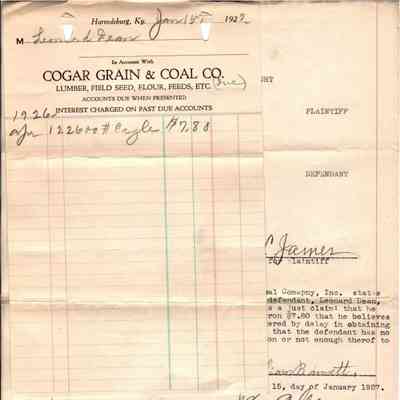 Harrodsburg, Ky. Jan 1st 1927
M Leonard Dean
In Account With
COGAR GRAIN & COAL CO.
(Inc)
LUMBER, FIELD SEED, FLOUR, FEEDS, ETC.
ACCOUNTS DUE WHEN PRESENTED
INTEREST CHARGED ON PAST DUE ACCOUNTS
1926
$7.80
HT
PLAINTIFF
DEFENDANT
C James
for Plaintiff
al Comapny, Inc. states
defendant, Leonard Dean,
s a just claim: that he
ron $7.80 that he believes
ered by delay in obtaining
that the defendant has no
on or not enough therof to
15, day of January 1927.